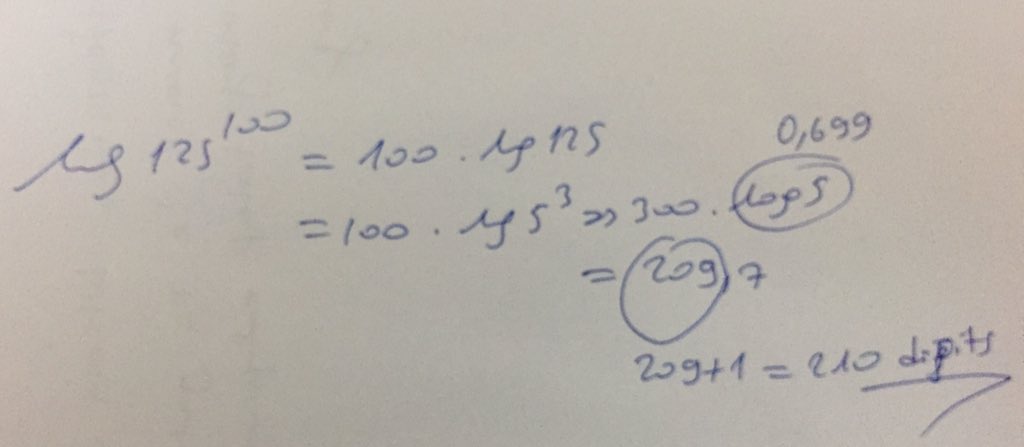 log 125^100 = 100 . log 125
0,699
= 100 . log 5^3 => 300 . log 5
= 209,7
209+1 = 210 digits